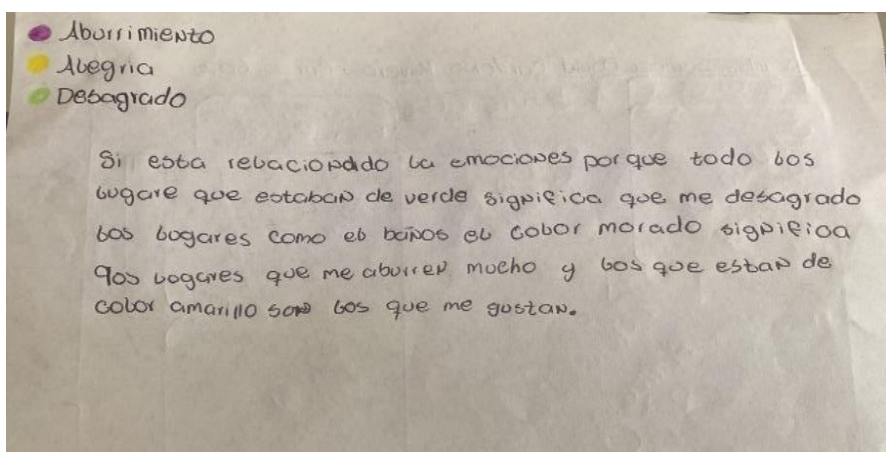 Aburrimiento
Alegria
Desagrado
Si esta relacionado la emociones porque todo los
lugare que estaban de verde significa que me desagrado
los lugares como el baños el color morado significa
los lugares que me aburren mucho y los que estan de
color amarillo son los que me gustan.